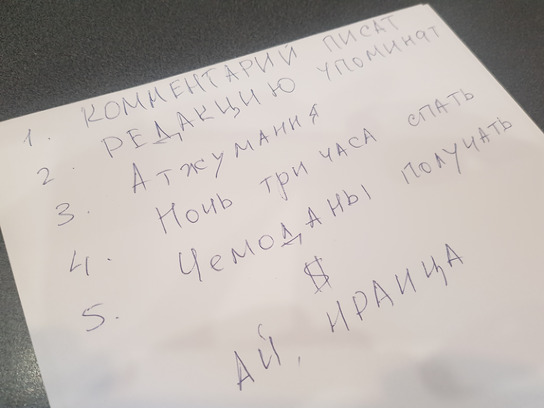 1. КОММЕНТАРИЙ ПИСАТ
2. РЕДАКЦИЮ УПОМИНЯТ
3. АТЖУМАНИЯ
4. НОЧЬ ТРИ ЧАСА СПАТЬ
5. ЧЕМОДАНЫ ПОЛУЧАТЬ
$
АЙ, НРАИЦА